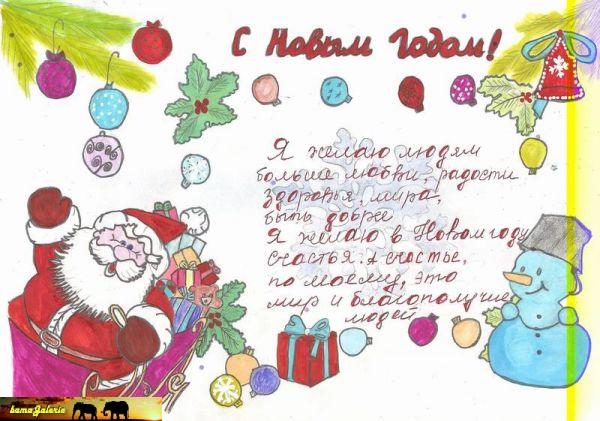 С Новым Годом!
Я желаю людям
больше любви, радости
здоровья, мира,
быть добрее
Я желаю в Новом году
счастья. А счастье,
по моему, это
мир и благополучие
людей
bamaGalerie